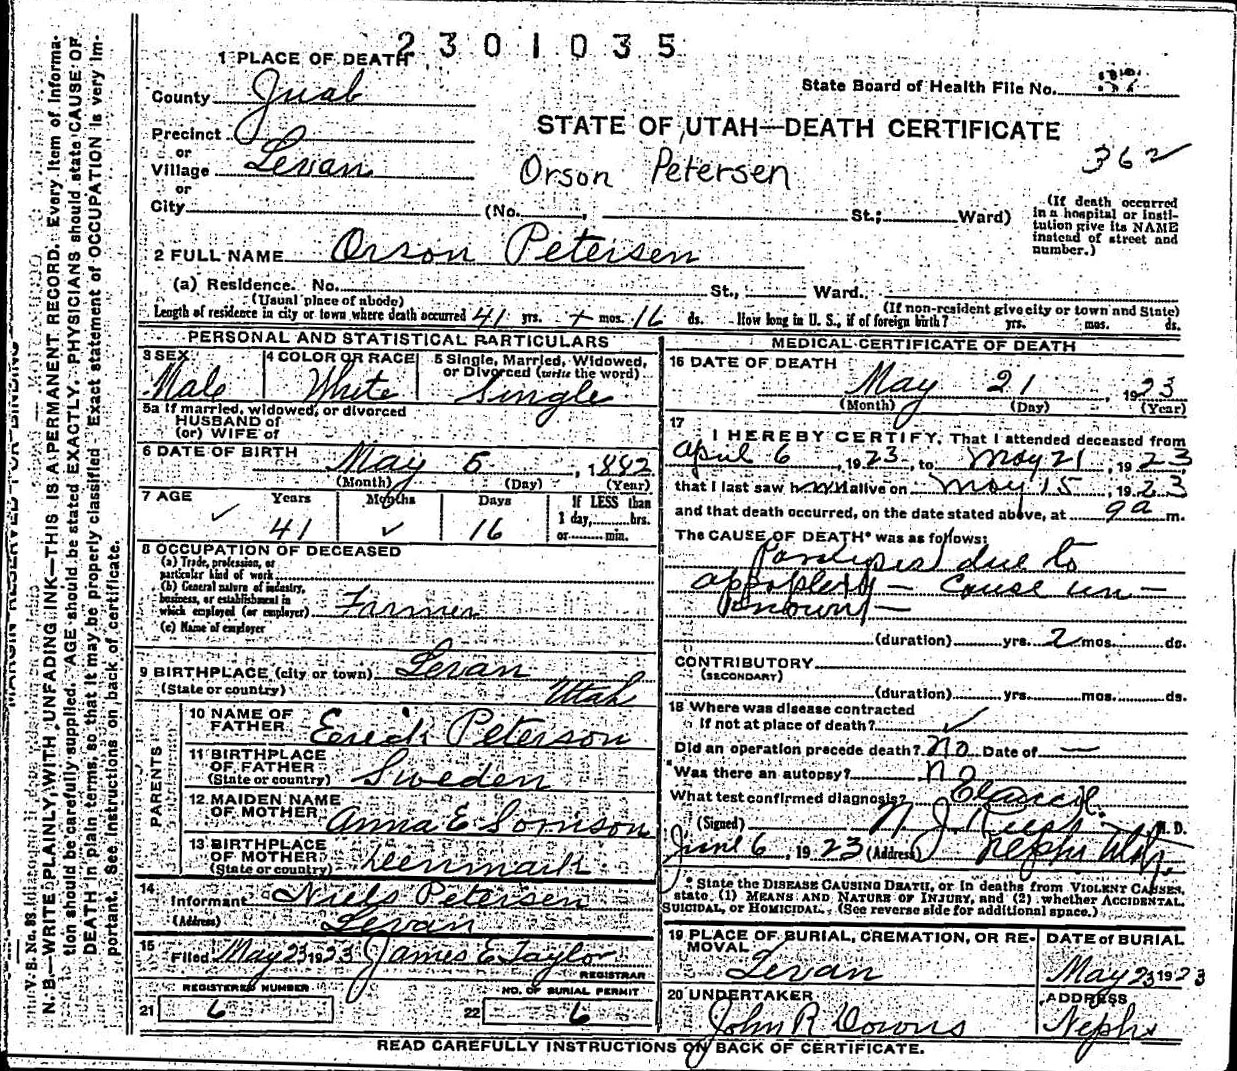 2301035
1 PLACE OF DEATH
State Board of Health File No.
County Juab
STATE OF UTAH—DEATH CERTIFICATE
Precinct
or
362
Village Levan
Orson Petersen
or
City (No. , St.; Ward)
(If death occurred in a hospital or institution give its NAME instead of street and number.)
2 FULL NAME Orson Petersen
(a) Residence. No. St., Ward.
(Usual place of abode) (If non-resident give city or town and State)
Length of residence in city or town where death occurred 41 yrs. + mos. 16 ds. How long in U. S., if of foreign birth? yrs. mos. ds.
PERSONAL AND STATISTICAL PARTICULARS
3 SEX Male
4 COLOR OR RACE White
5 Single, Married, Widowed, or Divorced (write the word) Single
5a If married, widowed, or divorced
HUSBAND of
(or) WIFE of
6 DATE OF BIRTH May 5, 1882
(Month) (Day) (Year)
7 AGE ✓ Years 41 Months ✓ Days 16 If LESS than 1 day, hrs. or min.
8 OCCUPATION OF DECEASED
(a) Trade, profession, or particular kind of work
(b) General nature of industry, business, or establishment in which employed (or employer) Farmer
(c) Name of employer
9 BIRTHPLACE (city or town) Levan
(State or country) Utah
PARENTS
10 NAME OF FATHER Erick Peterson
11 BIRTHPLACE OF FATHER (State or country) Sweden
12 MAIDEN NAME OF MOTHER Anna E.
13 BIRTHPLACE OF MOTHER (State or country) Denmark
14 Informant Niels Petersen
(Address) Levan
15 Filed May 23 1923 James E Taylor
REGISTRAR
REGISTERED NUMBER
21 6
NO. OF BURIAL PERMIT
22 6
MEDICAL CERTIFICATE OF DEATH
16 DATE OF DEATH
May 21, 1923
(Month) (Day) (Year)
17 I HEREBY CERTIFY, That I attended deceased from
April 6, 1923, to May 21, 1923
that I last saw him alive on May 15, 1923
and that death occurred, on the date stated above, at 9 a m.
The CAUSE OF DEATH* was as follows:
due to
— Cause un-
known—
(duration) yrs. 2 mos. ds.
CONTRIBUTORY
(SECONDARY)
(duration) yrs. mos. ds.
18 Where was disease contracted
if not at place of death? ✓
Did an operation precede death? No Date of —
Was there an autopsy? n
What test confirmed diagnosis?
(Signed) M. D.
June 6, 1923 (Address) Nephi Utah
* State the DISEASE CAUSING DEATH, or in deaths from VIOLENT CAUSES, state (1) MEANS AND NATURE OF INJURY, and (2) whether ACCIDENTAL, SUICIDAL, or HOMICIDAL. (See reverse side for additional space.)
19 PLACE OF BURIAL, CREMATION, OR REMOVAL Levan
DATE of BURIAL May 23 1923
20 UNDERTAKER John R Downs
ADDRESS Nephi
READ CAREFULLY INSTRUCTIONS ON BACK OF CERTIFICATE.
MARGIN RESERVED FOR BINDING
N. B.—WRITE PLAINLY, WITH UNFADING INK—THIS IS A PERMANENT RECORD. Every item of information should be carefully supplied. AGE should be stated EXACTLY. PHYSICIANS should state CAUSE OF DEATH in plain terms, so that it may be properly classified. Exact statement of OCCUPATION is very important. See instructions on back of certificate.